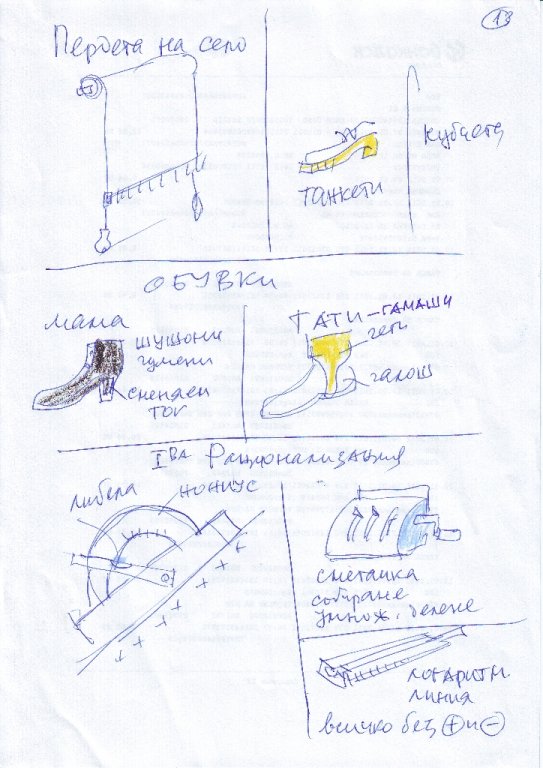 13
Пердета на село
Танкети
Кубчета
ОБУВКИ
мама
шушони
гумени
сменяем
ток
ТАТИ - ГАМАШИ
гети
галош
Iва Рационализация
либела
нониус
сметачка
събиране
умнож. деление
логаритм.
линия
всичко без + и -